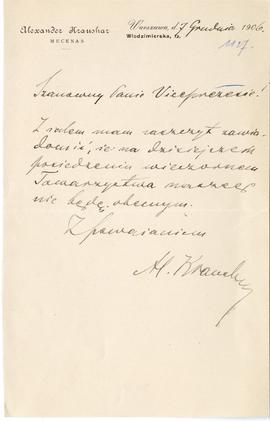 Alexander Kraushar
MECENAS
Warszawa, d. 7 Grudnia 1906.
Włodzimierska, 12.
1127.
Szanowny Panie Viceprezesie!
Z żalem mam zaszczyt zawia-
domić, że na dzisiejszem
posiedzeniu wieczornem
Towarzystwa naszego
nie będę obecnym.
Z poważaniem
Al. Kraushar